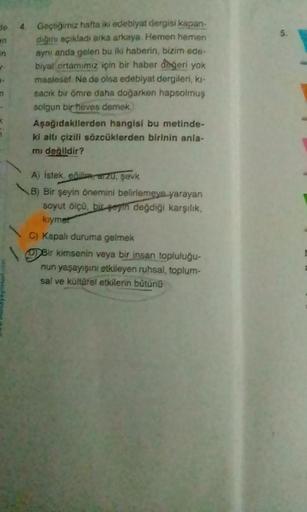 4. Geçtiğimiz hafta iki edebiyat dergisi kapan-
dığını açıkladı arka arkaya. Hemen hemen
aynı anda gelen bu iki haberin, bizim ede-
biyat ortamımız için bir haber değeri yok
maalesef. Ne de olsa edebiyat dergileri, kı-
sacık bir ömre daha doğarken hapsolmuş
solgun bir heves demek.
Aşağıdakilerden hangisi bu metinde-
ki altı çizili sözcüklerden birinin anla-
mı değildir?
A) İstek, eğilim, arzu, şevk
B) Bir şeyin önemini belirlemeye yarayan
soyut ölçü, bir şeyin değdiği karşılık,
kıymet
C) Kapalı duruma gelmek
D) Bir kimsenin veya bir insan topluluğu-
nun yaşayışını etkileyen ruhsal, toplum-
sal ve kültürel etkilerin bütünü
5.